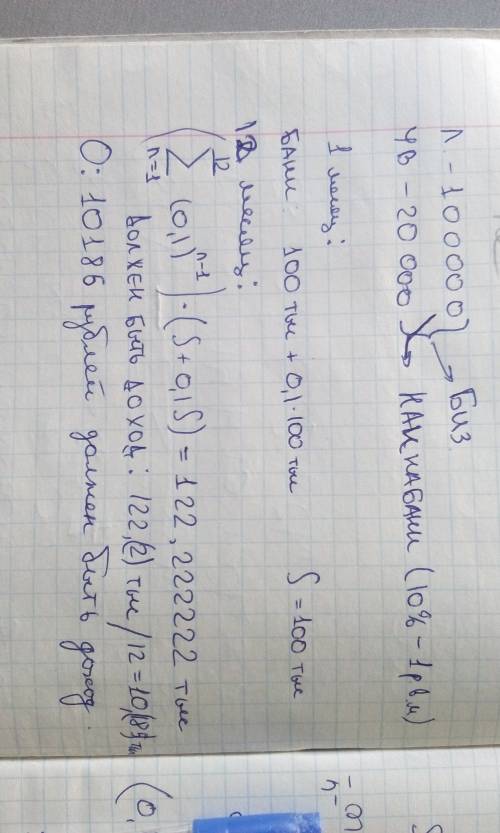 Л. - 100000 } → БИЗ
ЧВ - 20 000 } → КАННАБАНИ (10% - 1р в м)
1 месяц:
БАНИ: 100 тыс + 0,1·100 тыс S = 100 тыс
12 месяц:
(∑ₙ₌₁¹² (0,1)ⁿ⁻¹) · (S + 0,1S) = 122,222222 тыс
Должен быть доход: 122,(2) тыс / 12 = 10,(185) тыс
О: 10186 рублей должен быть доход.
(0,